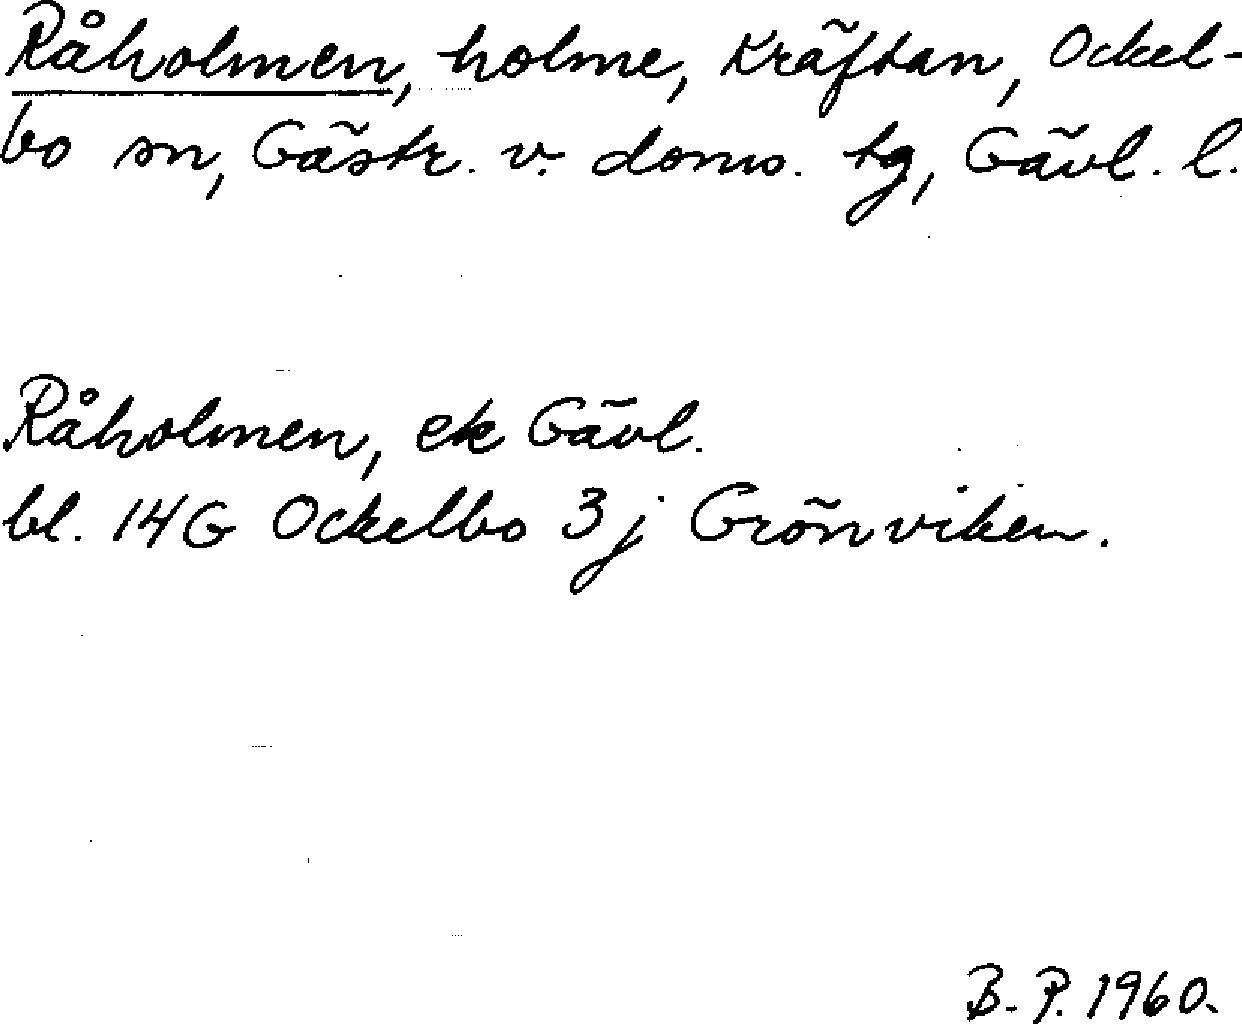 Råholmen, holme, Kräftan, Ockel-
bo sn, Gästr. v. doms. tg, Gävl. l.
Råholmen, ek Gävl.
bl. 14G Ockelbo 3j Grönviken.
B. P. 1960.